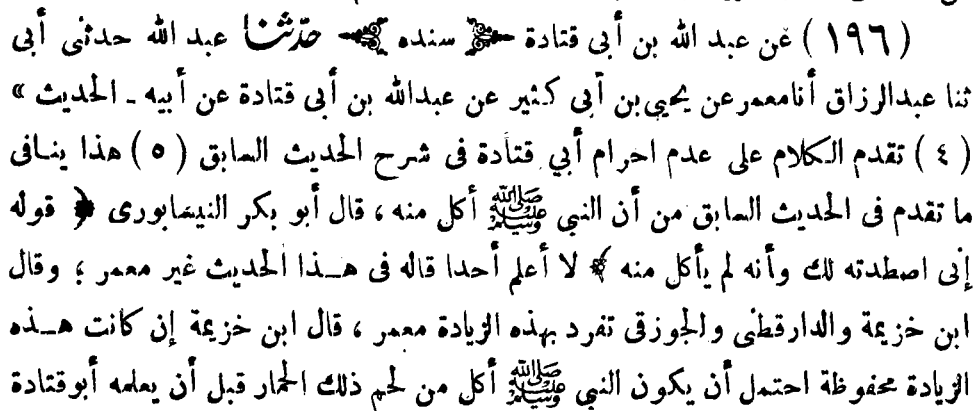 (١٩٦) عن عبد الله بن أبى قتادة ﴿ سنده ﴾ حدّثنا عبد الله حدثنى أبى
ثنا عبدالرزاق أنامعمر عن يحيى بن أبى كثير عن عبدالله بن أبى قتادة عن أبيه ـ الحديث »
(٤) تقدم الكلام على عدم احرام أبي قتادة فى شرح الحديث السابق (٥) هذا ينافى
ما تقدم فى الحديث السابق من أن النبي ﷺ أكل منه ، قال أبو بكر النيسابورى ﴿ قوله
إنى اصطدته لك وأنه لم يأكل منه ﴾ لا أعلم أحدا قاله فى هــذا الحديث غير معمر ؛ وقال
ابن خزيمة والدارقطنى والجوزقى تفرد بهذه الزيادة معمر ، قال ابن خزيمة إن كانت هــذه
الزيادة محفوظة احتمل أن يكون النبي ﷺ أكل من لحم ذلك الحمار قبل أن يعلمه أبوقتادة